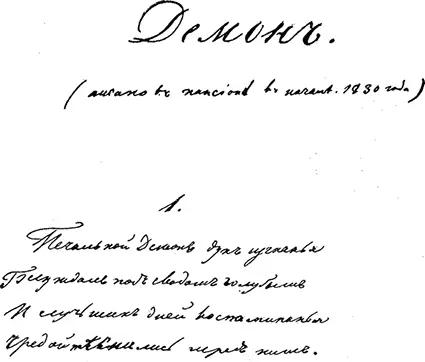 Демонъ.
(писано въ пансіонѣ въ началѣ 1830 года)
1.
Печальной Демонъ духъ изгнанья
Блуждалъ подъ сводомъ голубымъ
И лучшихъ дней воспоминанья
Чредой тѣснились передъ нимъ.